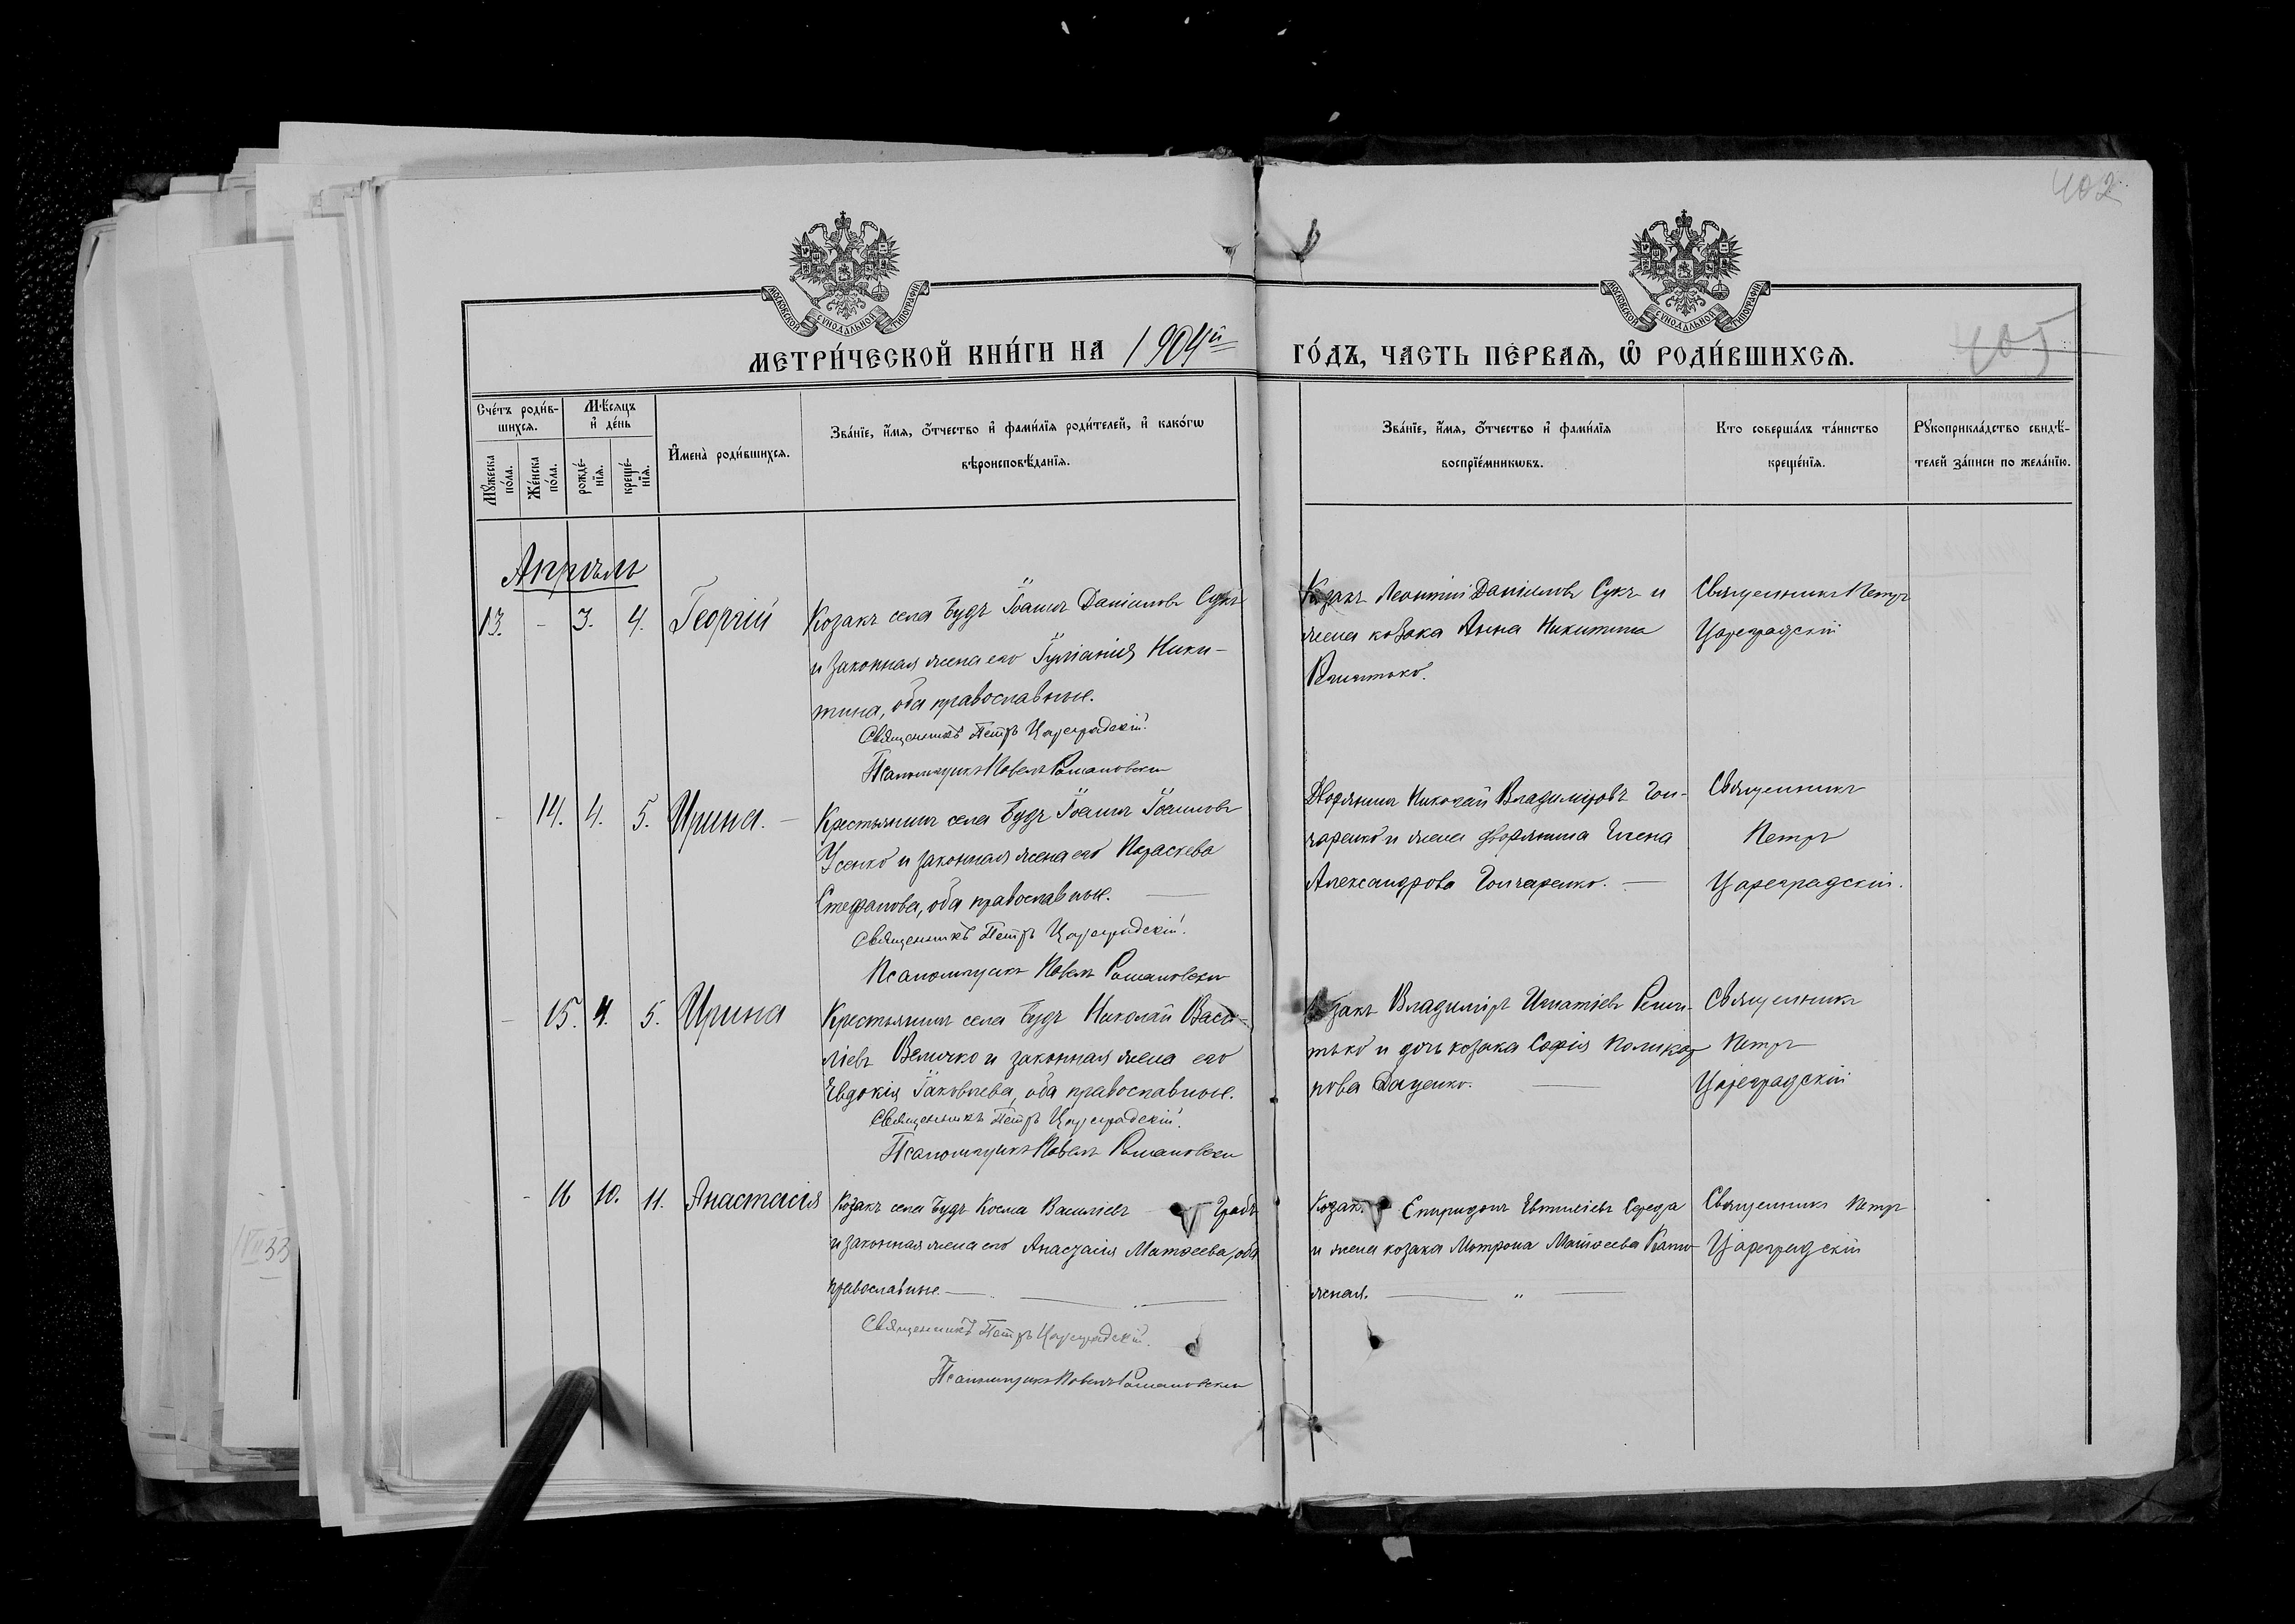 402
МОСКОВСКОЙ СѴНОДАЛЬНОЙ ТИПОГРАФІИ
МОСКОВСКОЙ СѴНОДАЛЬНОЙ ТИПОГРАФІИ
МЕТРИ́ЧЕСКОЙ КНИ́ГИ НА 1904й
ГО́ДЪ, ЧАСТЬ ПЕ́РВАѦ, Ѡ҆ РОДИ́ВШИХСѦ.
405
Сче́тъ роди́в-
шихсѧ.
Мѣ́сѧцъ
и҆ де́нь
Мꙋ́жеска
по́ла.
Же́нска
по́ла.
рожде́-
нїѧ.
креще́-
нїѧ.
И҆мена̀ роди́вшихсѧ.
Зва́нїе, и҆́мѧ, ѻ҆́тчество и҆ фами́лїѧ роди́телей, и҆ како́гѡ
вѣроисповѣ́данїѧ.
Зва́нїе, и҆́мѧ, ѻ҆́тчество и҆ фами́лїѧ
воспрїе́мникѡвъ.
Кто соверша́лъ та́инство
креще́нїѧ.
Рꙋкоприкла́дство свидѣ́-
телей за́писи по жела́нїю.
Апрѣль
13. - 3. 4. Георгій
Козакъ села Будъ Іоаннъ Даніиловъ Сукъ
и законная жена его Іуліанія Ники-
тина, оба православные.
Священникъ Петръ Цареградскій.
Псаломщикъ Павелъ Романовскій
Козакъ Леонтій Даніиловъ Сукъ и
жена козака Анна Никитина
Священникъ Петръ
Цареградскій
- 14. 4. 5. Ирина. -
Крестьянинъ села Будъ Іоаннъ Іоанновъ
Усенко и законная жена его Параскева
Стефанова, оба православные.
Священникъ Петръ Цареградскій.
Псаломщикъ Павелъ Романовскій
Дворянинъ Николай Владиміровъ Гон-
чаренко и жена дворянина Елена
Александрова Гончаренко.
Священникъ
Петръ
Цареградскій.
- 15. 4. 5. Ирина
Крестьянинъ села Будъ Николай Васи-
ліевъ Величко и законная жена его
Евдокія Іаковлева, оба православные.
Священникъ Петръ Цареградскій.
Псаломщикъ Павелъ Романовскій
Козакъ Владиміръ Игнатіевъ
и дочь козака Софія Поликар
пова Даценко.
Священникъ
Петръ
Цареградскій
- 16 10. 11. Анастасія
Козакъ села Будъ Косма Василіевъ Грабъ
и законная жена его Анастасія Матѳеева, оба
православные
Священникъ Петръ Цареградскій.
Псаломщикъ Павелъ Романовскій
Козакъ Спиридонъ Евтихіевъ Середа
и жена козака Мотрона Матѳеева
Священникъ Петръ
Цареградскій
33